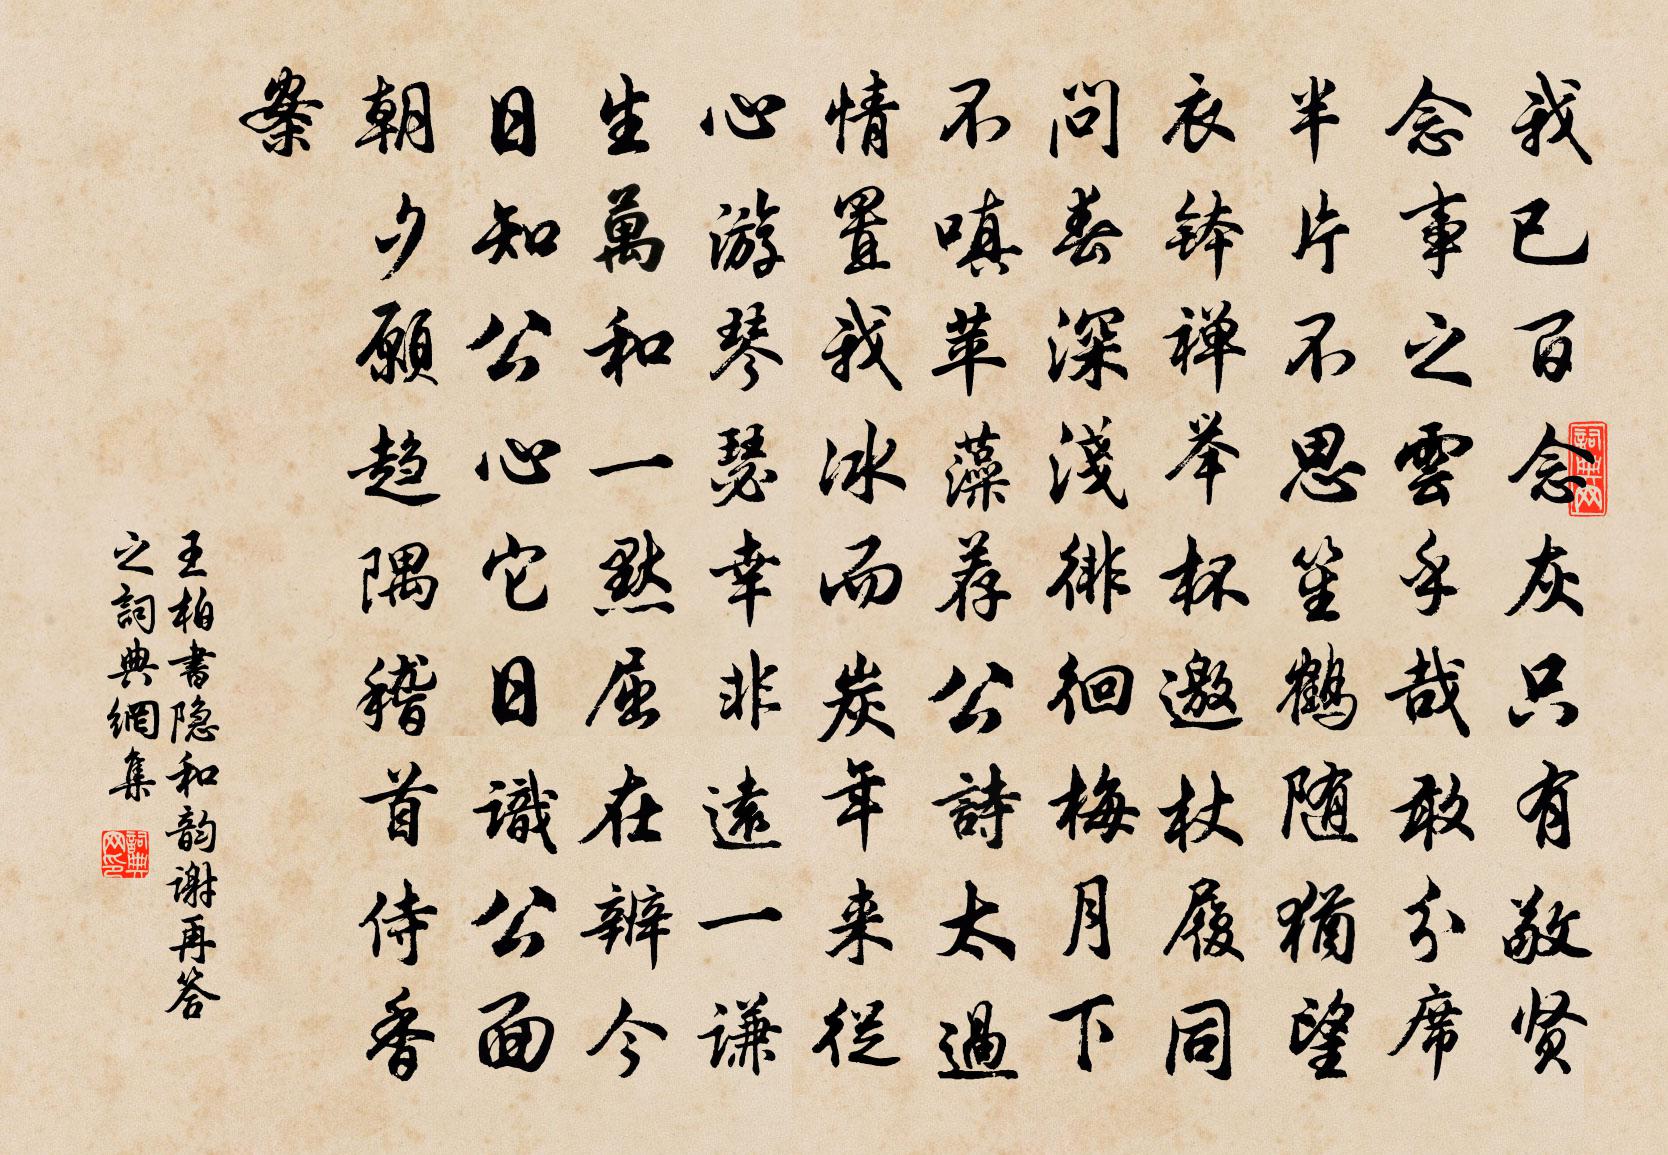 我已百念灰只有敬贤
念事之雲乎哉敢分席
半片不思笙鹤随猶望
衣钵禅举杯邀杖履同
问春深淺徘徊梅月下
不嗔苹藻荐公詩太過
情置我冰而炭年来從
心游琴瑟幸非遠一谦
生萬和一點屈在辨今
日知公心它日識公面
朝夕願趋隅稽首侍香
案
王柏書隐和韵谢再答
之詞典網集
詞典网
詞典网印